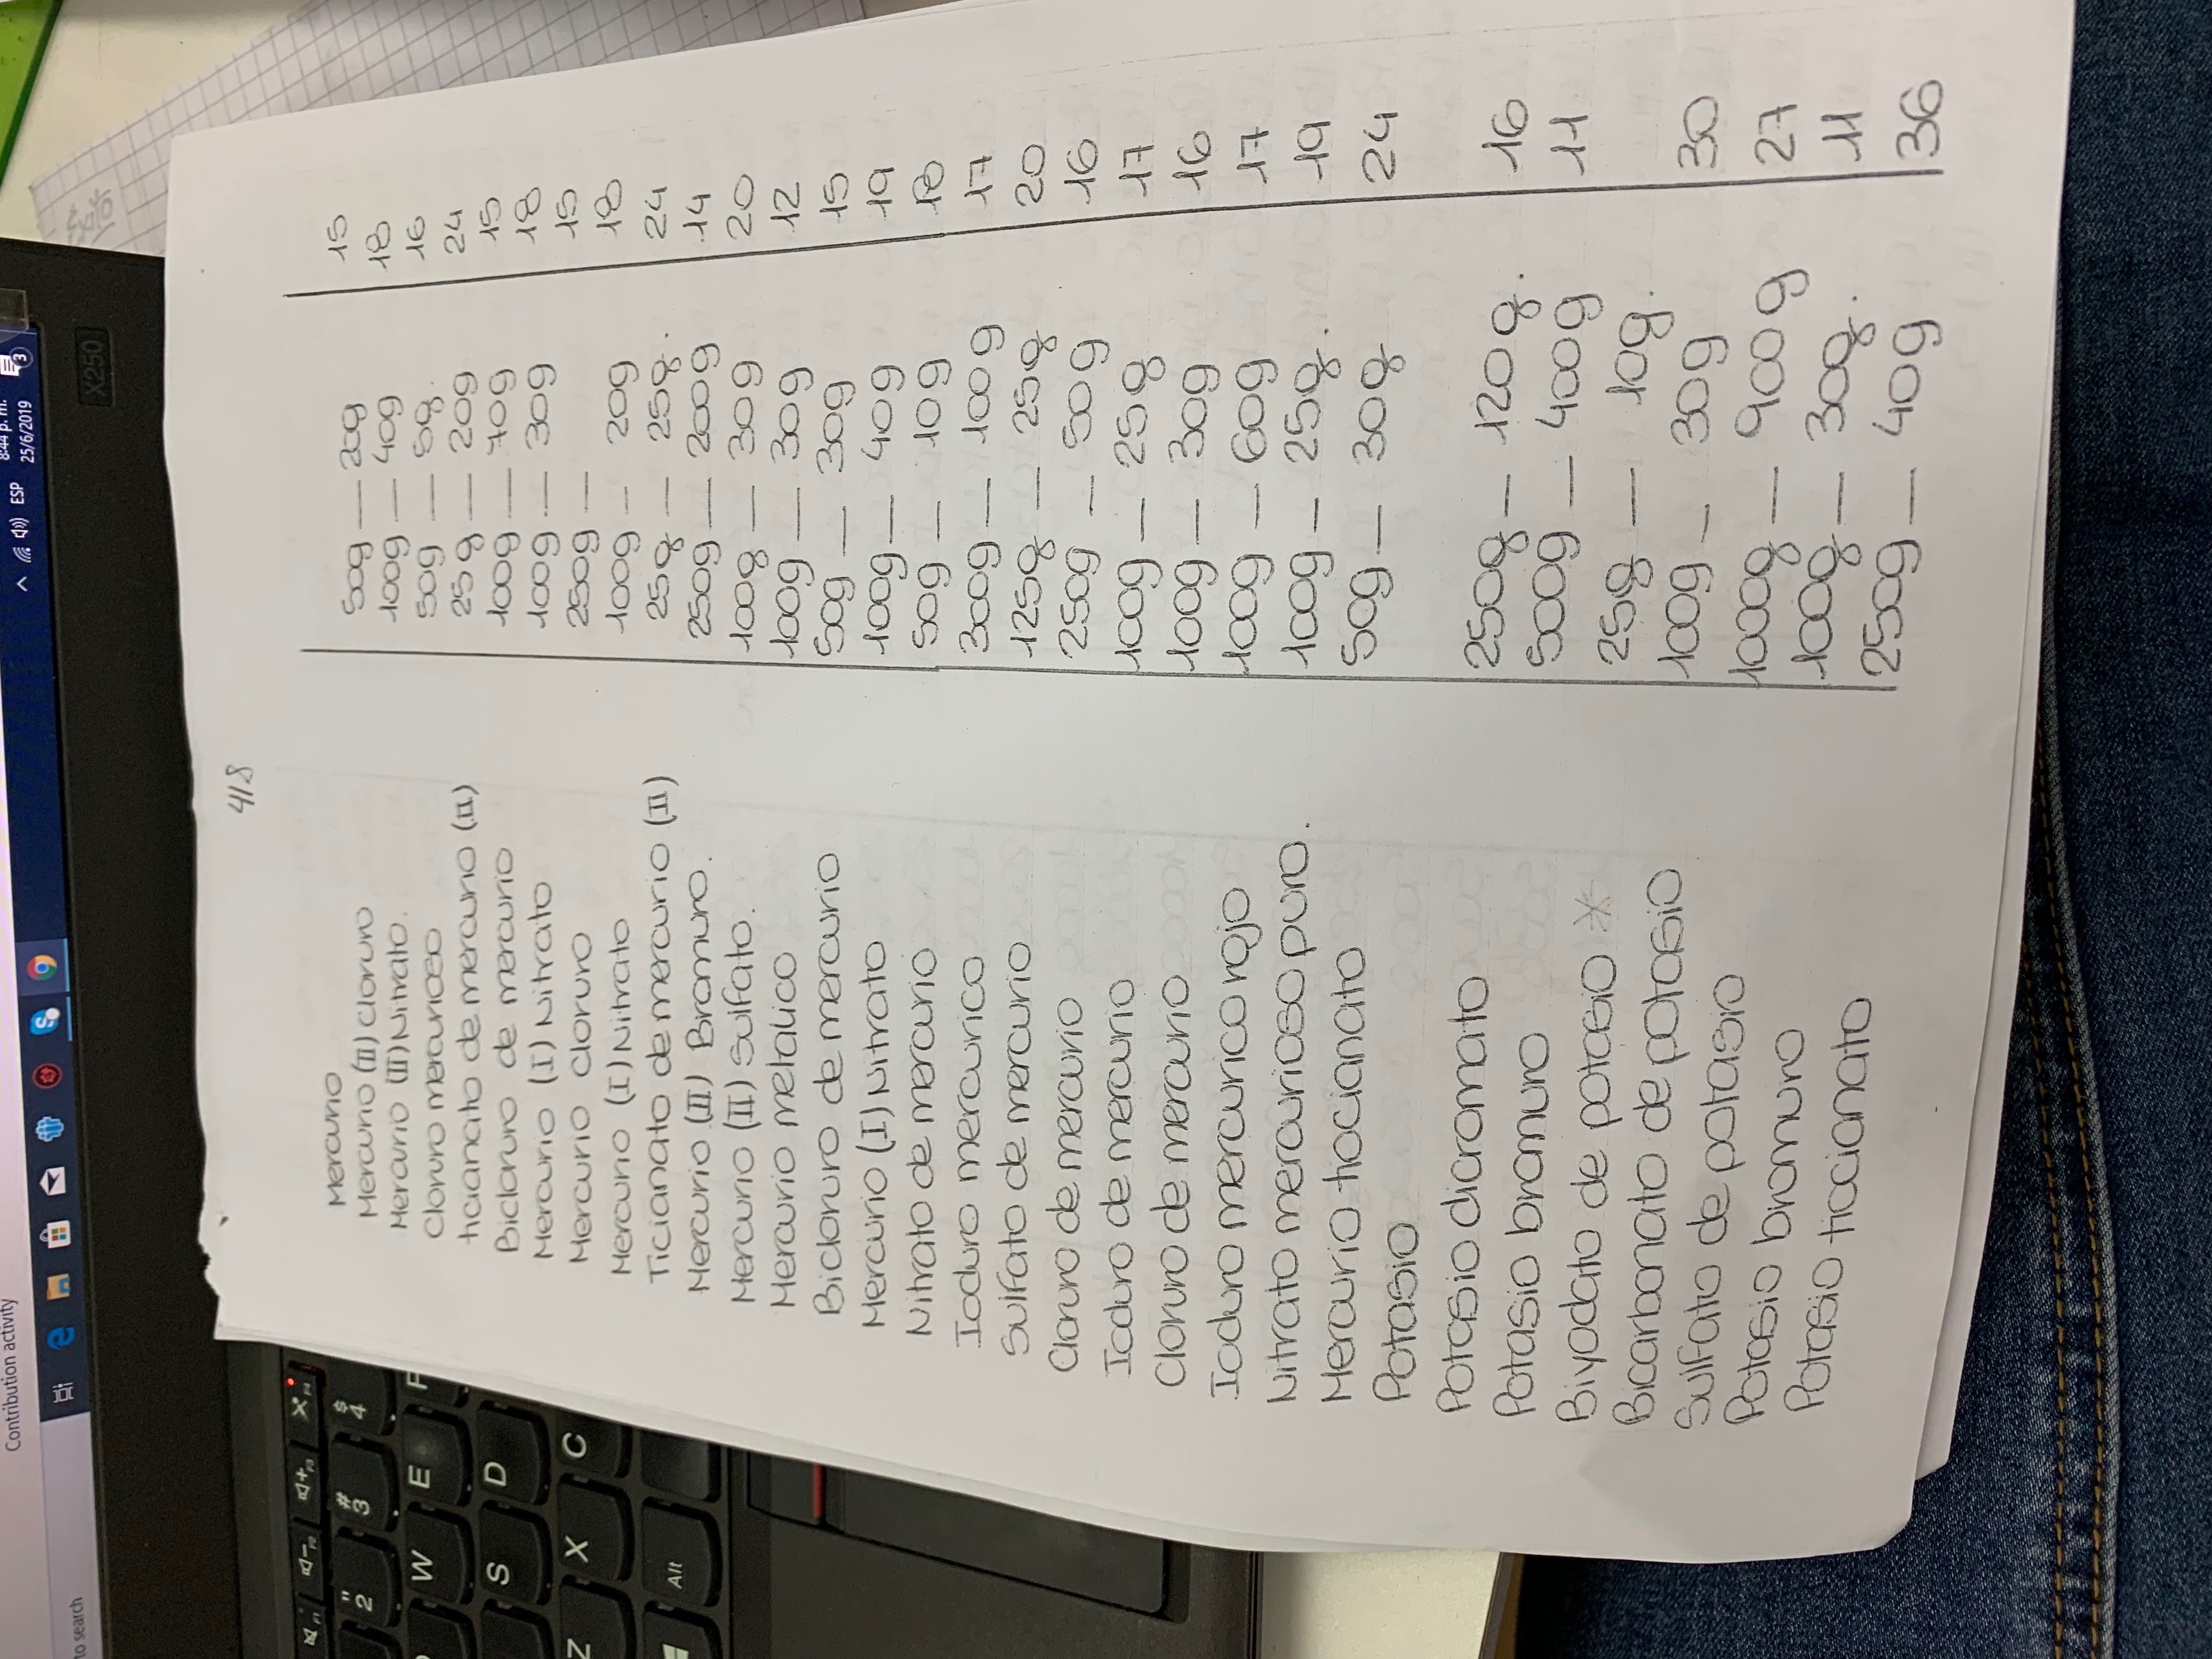 Contribution activity
to search
ESP
8:44 p. m.
25/6/2019
3
X250
F1 F2 F3 F4
" 2 # 3 $ 4
W E
S D
Z X C
Alt
418
Mercurio
Mercurio (II) Cloruro 50g — 20g 15
Mercurio (II) Nitrato. 100g — 40g 18
Cloruro mercurioso 50g — 5g. 16
ticianato de mercurio (II) 25g — 20g 24
Bicloruro de mercurio 100g — 70g 15
Mercurio (I) Nitrato 100g — 30g 18
Mercurio Cloruro 250g — 15
Mercurio (I) Nitrato 100g — 20g 18
Ticianato de mercurio (II) 25g — 25g. 24
Mercurio (II) Bromuro. 250g — 200g 14
Mercurio (II) Sulfato. 100g — 30g 20
Mercurio metalico 100g — 30g 12
Bicloruro de mercurio 50g — 30g 15
Mercurio (I) Nitrato 100g — 40g 19
Nitrato de mercurio 50g — 10g 18
Ioduro mercurico 300g — 100g 17
Sulfato de mercurio 125g — 25g 20
Cloruro de mercurio 250g — 50g 16
Ioduro de mercurio 100g — 25g 17
Cloruro de mercurio 100g — 30g 16
Ioduro mercurico rojo 100g — 60g 17
Nitrato mercurioso puro. 100g — 25g. 19
Mercurio tiocianato 50g — 30g 24
Potasio
Potasio dicromato 250g — 120g. 16
Potasio bromuro 500g — 400g 11
Biyodato de potasio * 25g — 10g.
Bicarbonato de potasio 100g — 30g 30
Sulfato de potasio 1000g — 900g 27
Potasio bromuro 100g — 30g. 11
Potasio tiocianato 250g — 40g 36